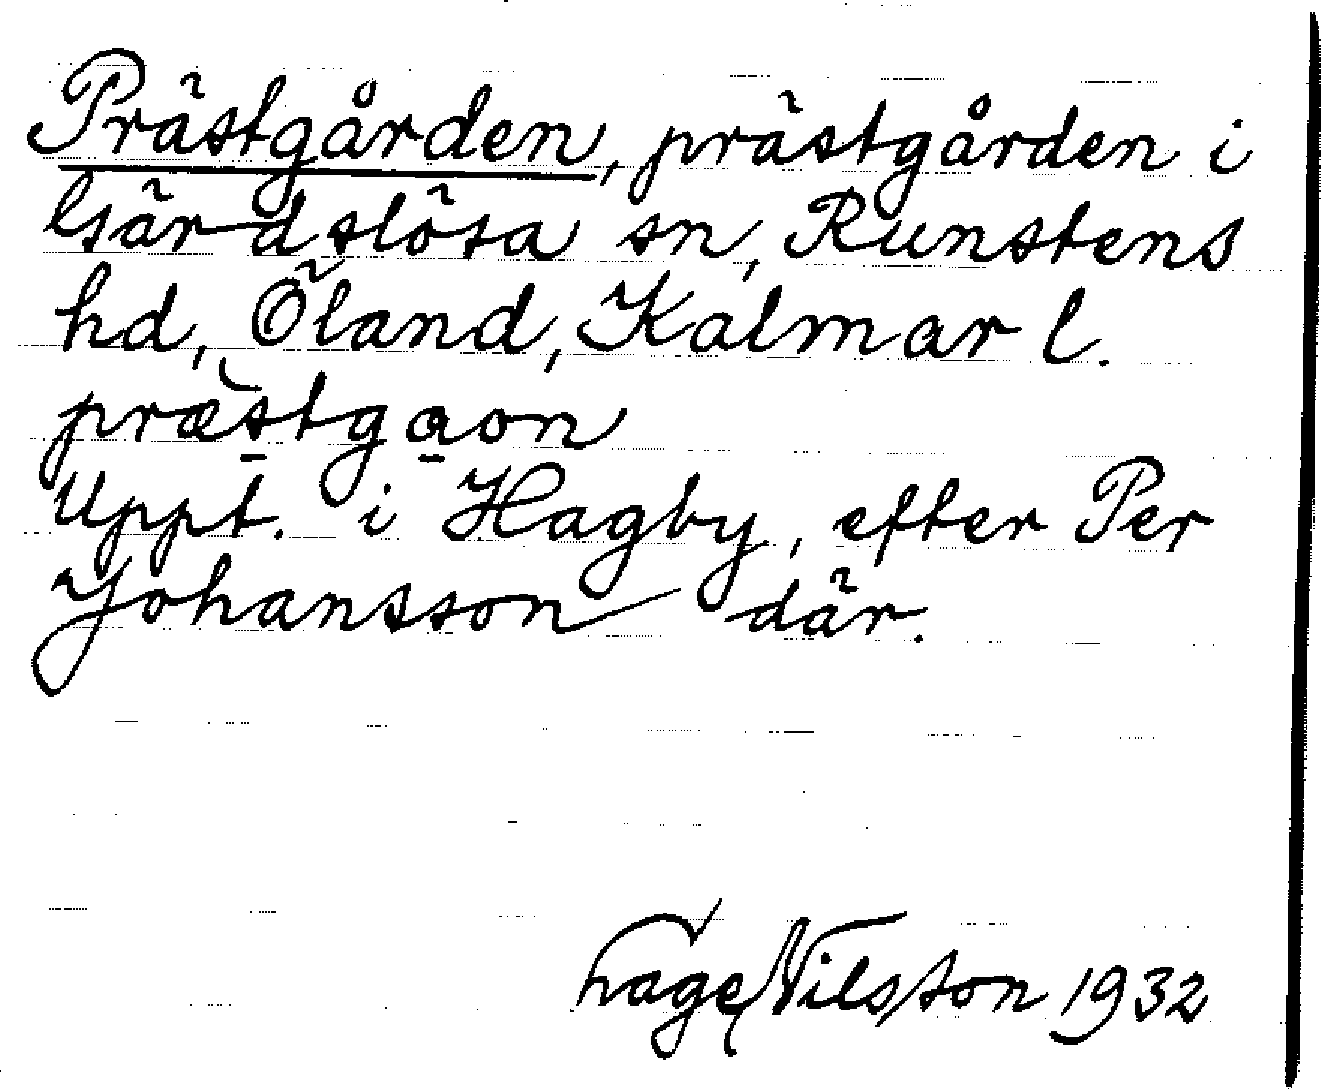 Prästgården, prästgården i
Gärdslösa sn, Runstens
hd, Öland, Kalmar l.
præ̀s̱tga̱on
Uppt. i Hagby, efter Per
Johansson där.
Lage Nilsson 1932